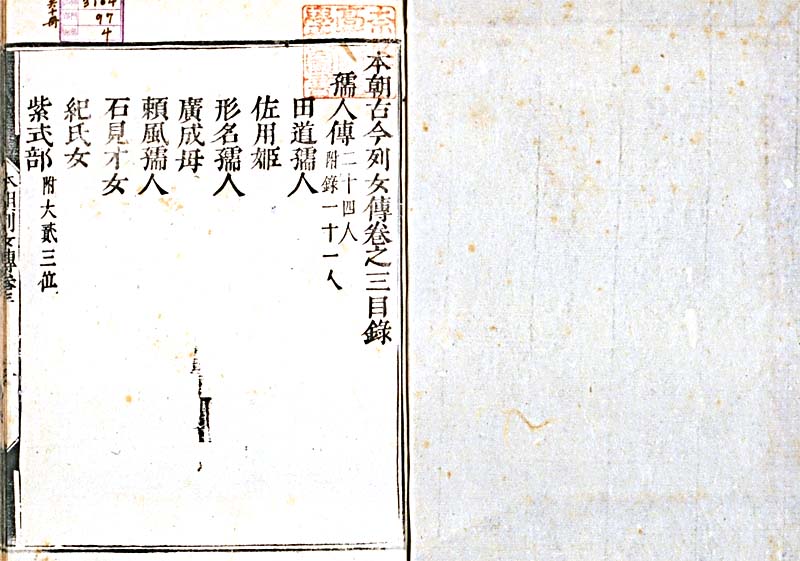 本朝古今列女傳卷之三目錄
孺人傳 二十四人 附錄一十一人
田道孺人
佐用姬
形名孺人
廣成母
賴風孺人
石見才女
紀氏女
紫式部 附大貳三位
97
4